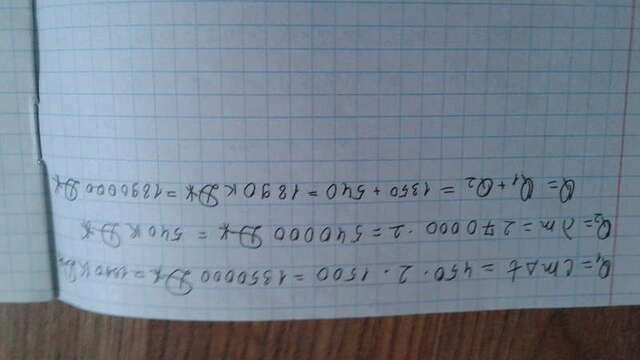 Q₁ = cmΔt = 450 · 2 · 1500 = 1350000 Дж =
Q₂ = λm = 270000 · 2 = 540000 Дж = 540 кДж
Q = Q₁ + Q₂ = 1350 + 540 = 1890 кДж = 1890000 Дж